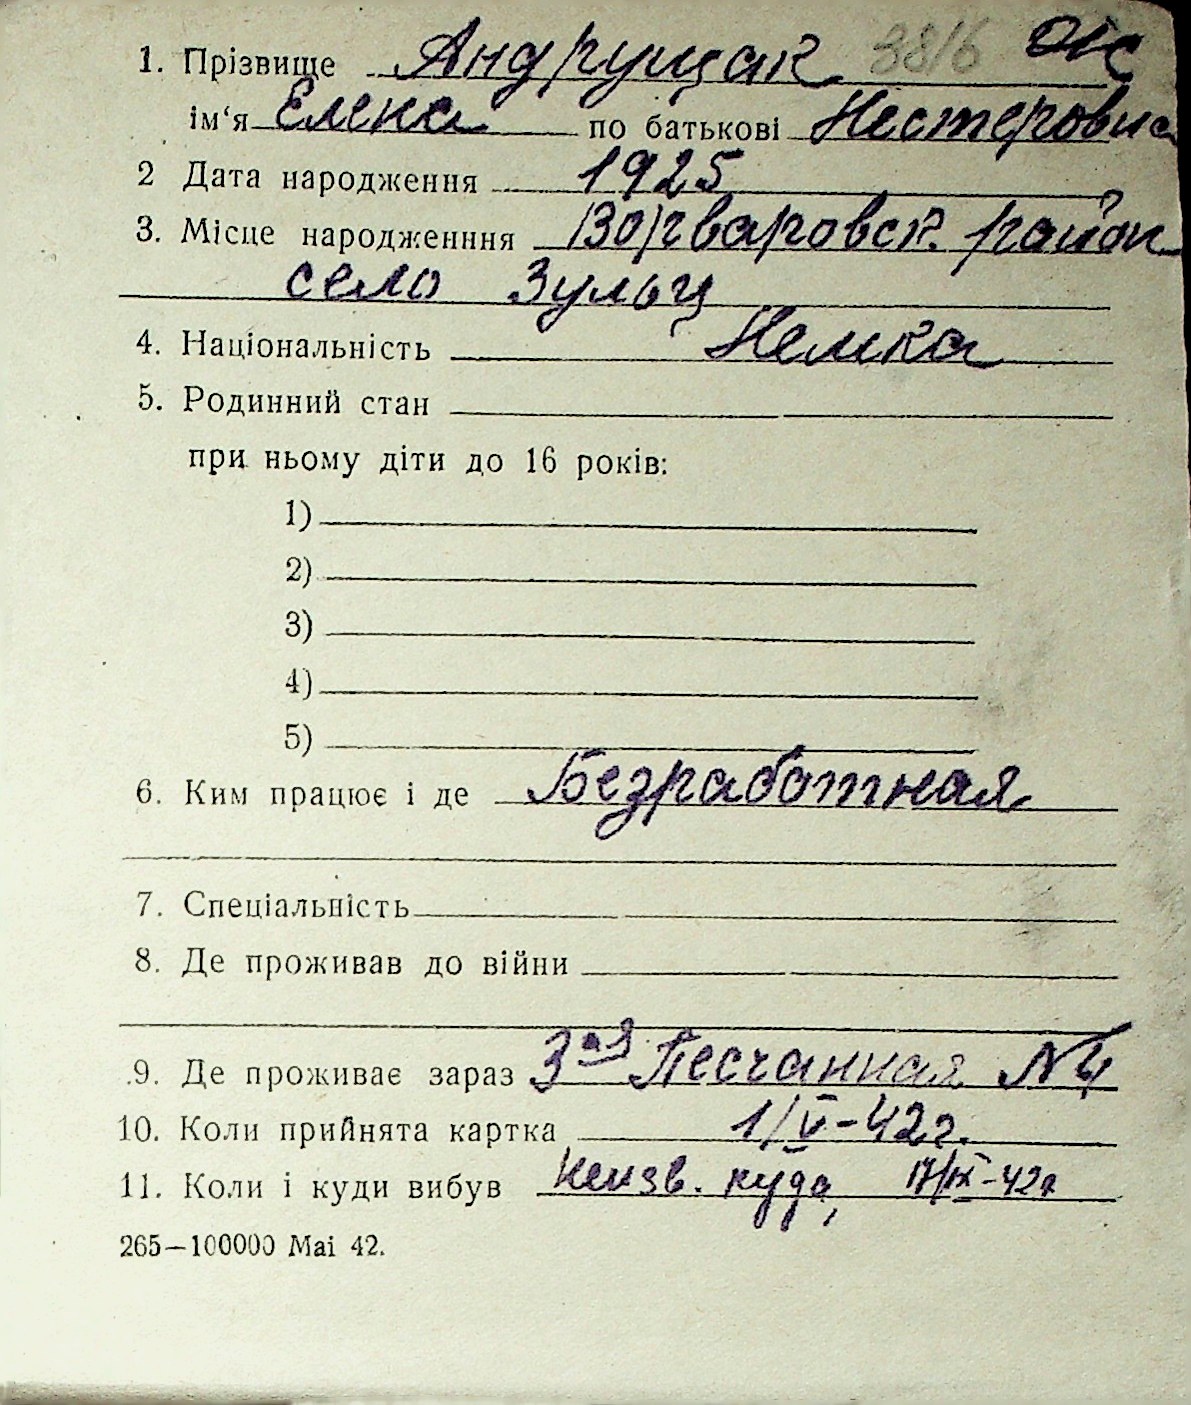 1. Прізвище Андрущак 38/6
ім‘я Елена по батькові Нестеровна
2 Дата народження 1925
3. Місце народженння район
село Зульц
4. Національність Немка
5. Родинний стан
при ньому діти до 16 років:
1)
2)
3)
4)
5)
6. Ким працює і де Безработная
7. Спеціальність
8. Де проживав до війни
9. Де проживає зараз 3ая Песчанная № 4
10. Коли прийнята картка 1/V-42г.
11. Коли і куди вибув неизв. куда, 17/IX-42г
265—100000 Маі 42.